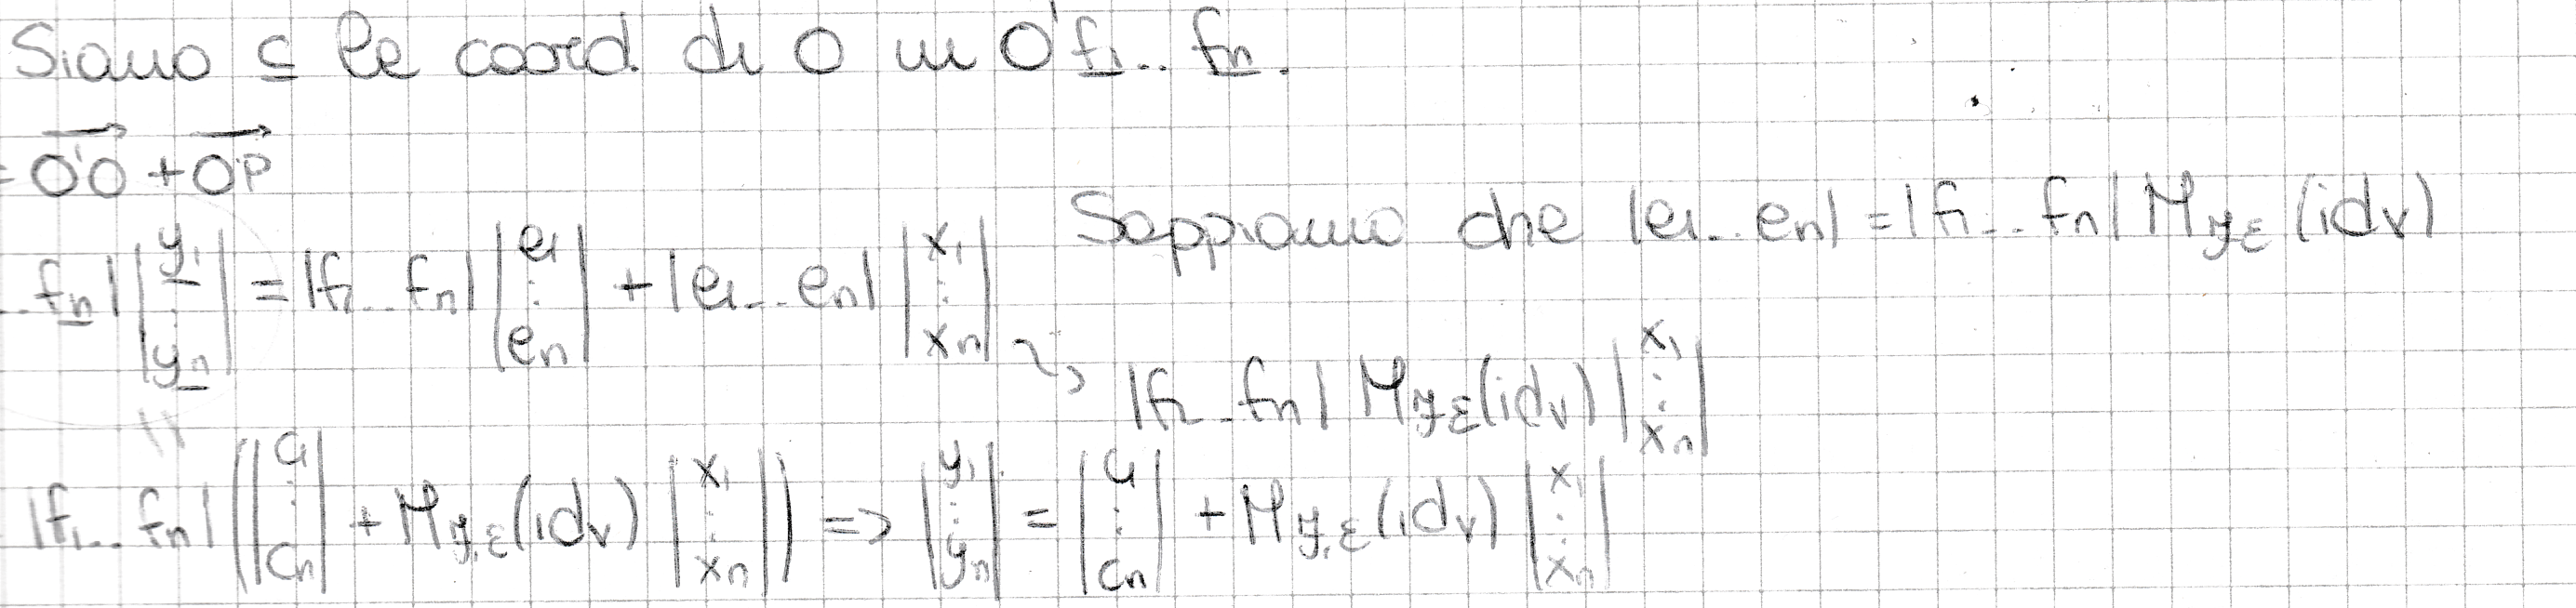 Siano c le coord. di O in O' f1... fn.
= O'O + OP
Sappiamo che |e1...en| = |f1...fn| M_{F E}(id_V)
...fn| |y1 : yn| = |f1...fn| |e1 : en| + |e1...en| |x1 : xn|
|f1...fn| M_{F E}(id_V) |x1 : xn|
|f1...fn| (|c1 : cn| + M_{F,E}(id_V) |x1 : xn|) => |y1 : yn| = |c1 : cn| + M_{F,E}(id_V) |x1 : xn|